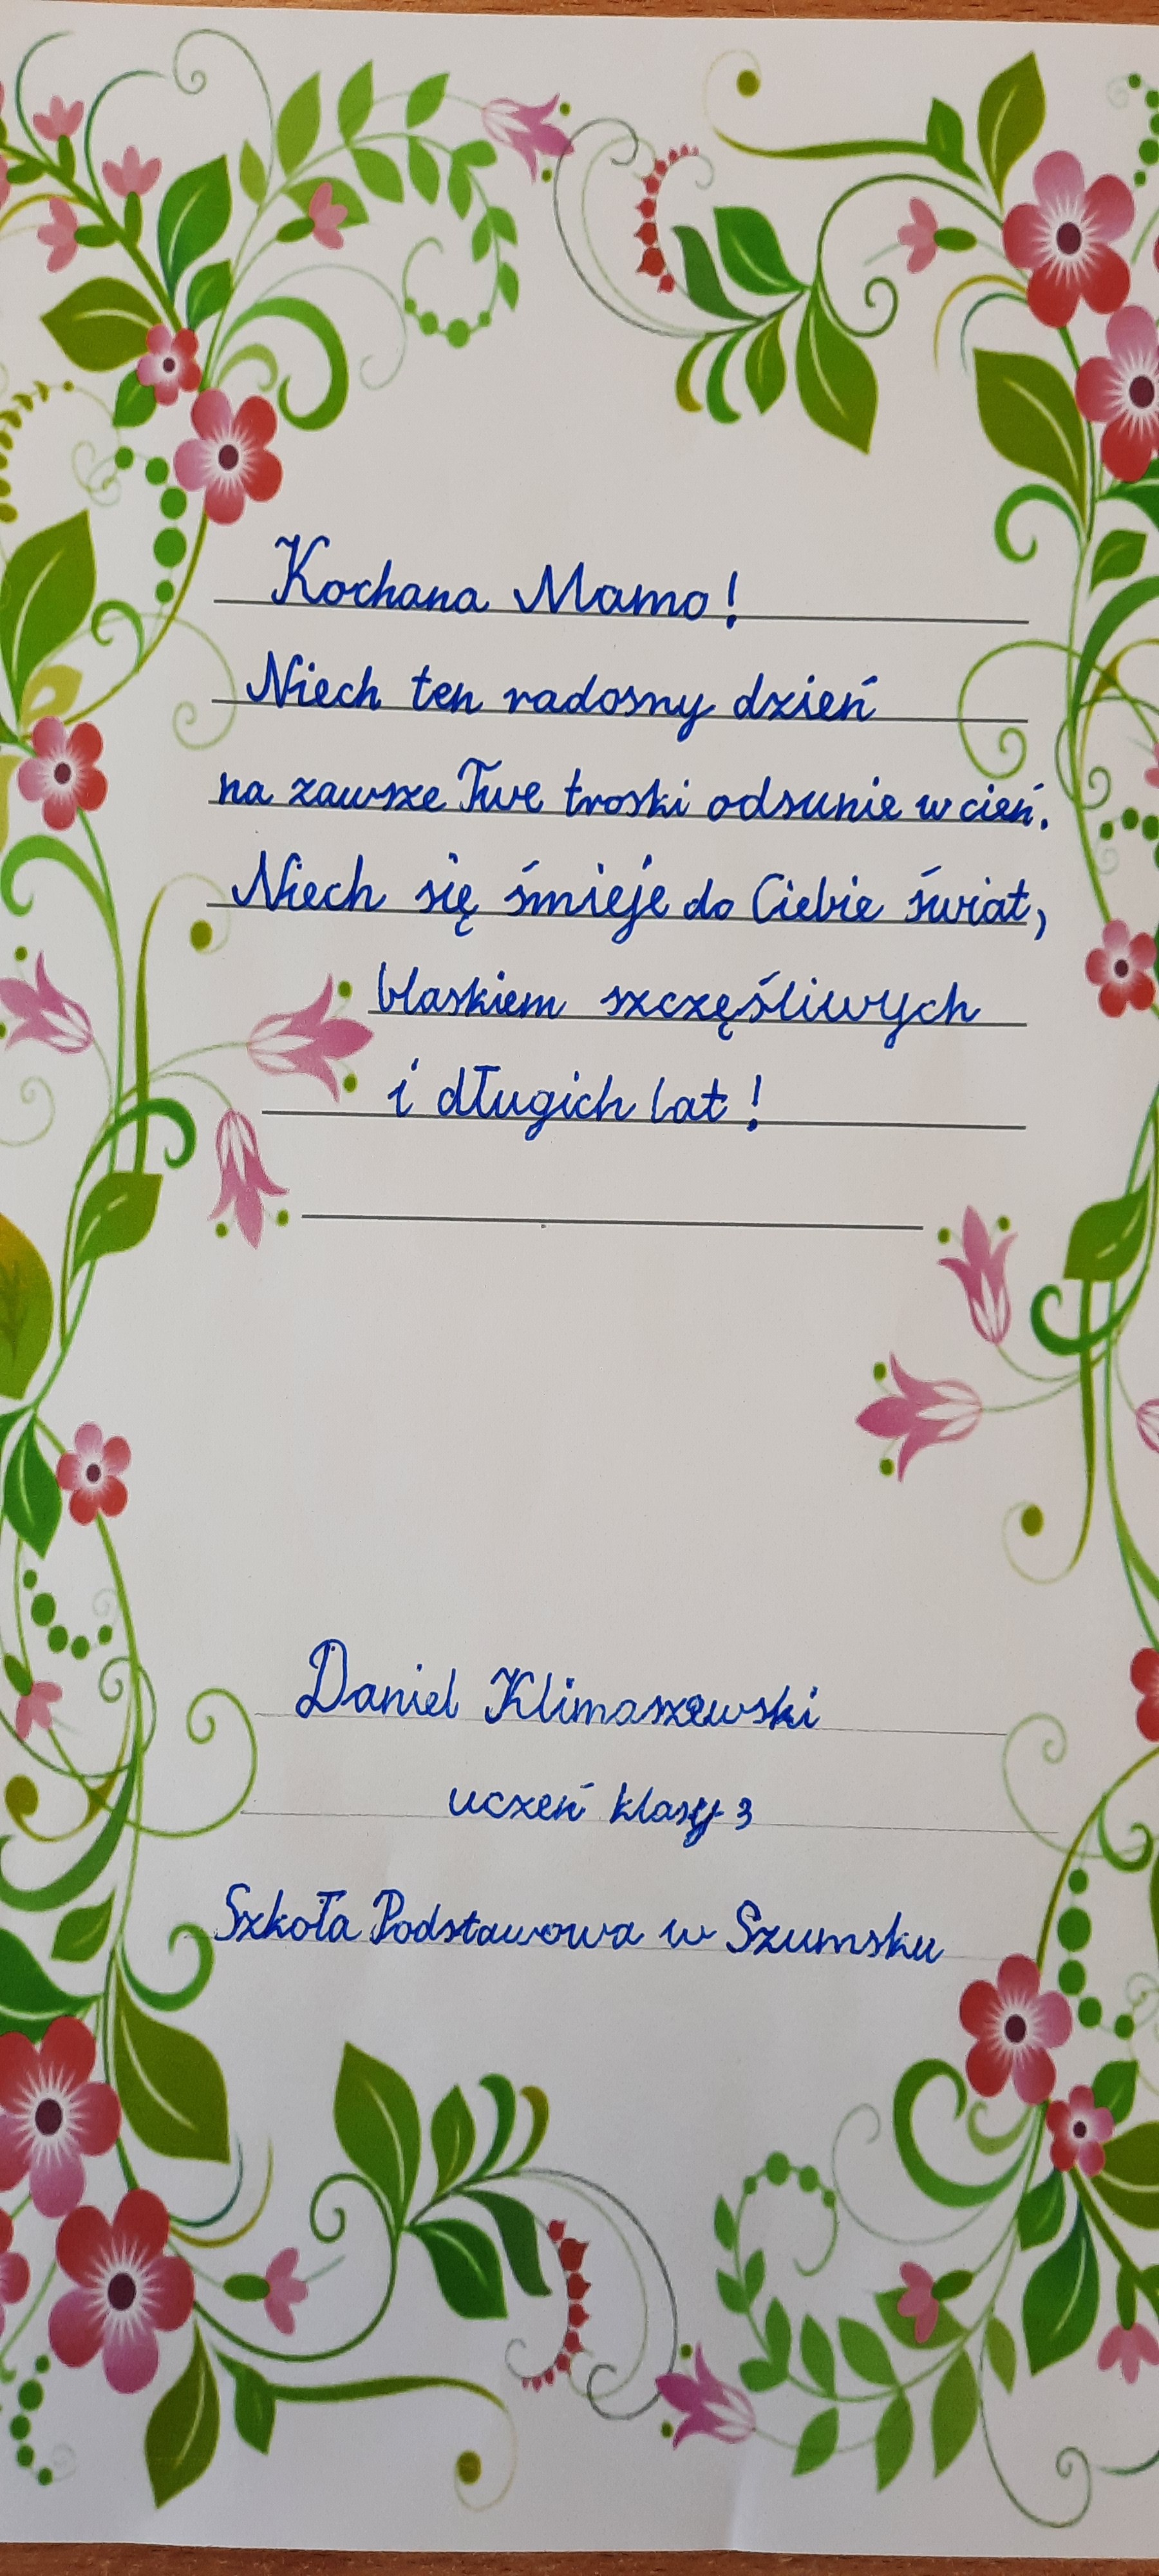 Kochana Mamo!
Niech ten radosny dzień
na zawsze Twe troski odsunie w cień.
Niech się śmieje do Ciebie świat,
blaskiem szczęśliwych
i długich lat!
Daniel Klimaszewski
uczeń klasy 3
Szkoła Podstawowa w Szumsku